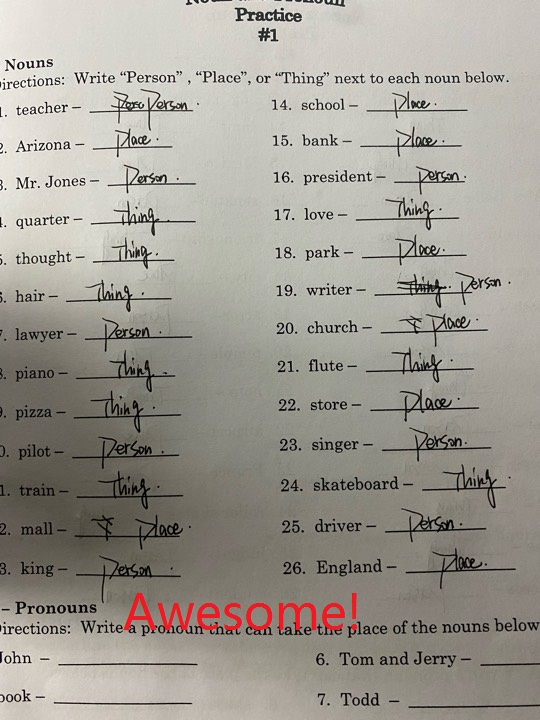 Practice
#1
Nouns
Directions: Write “Person” , “Place”, or “Thing” next to each noun below.
1. teacher – Person.
2. Arizona – Place.
3. Mr. Jones – Person.
4. quarter – Thing.
5. thought – Thing.
6. hair – Thing.
7. lawyer – Person.
8. piano – Thing.
9. pizza – Thing.
0. pilot – Person.
1. train – Thing.
2. mall – Place.
3. king – Person.
14. school – Place.
15. bank – Place.
16. president – person.
17. love – Thing.
18. park – Place.
19. writer – Thing. Person.
20. church – Place.
21. flute – Thing.
22. store – Place.
23. singer – Person.
24. skateboard – Thing.
25. driver – Person.
26. England – Place.
– Pronouns
Awesome!
Directions: Write a pronoun that can take the place of the nouns below
John –
book –
6. Tom and Jerry –
7. Todd –